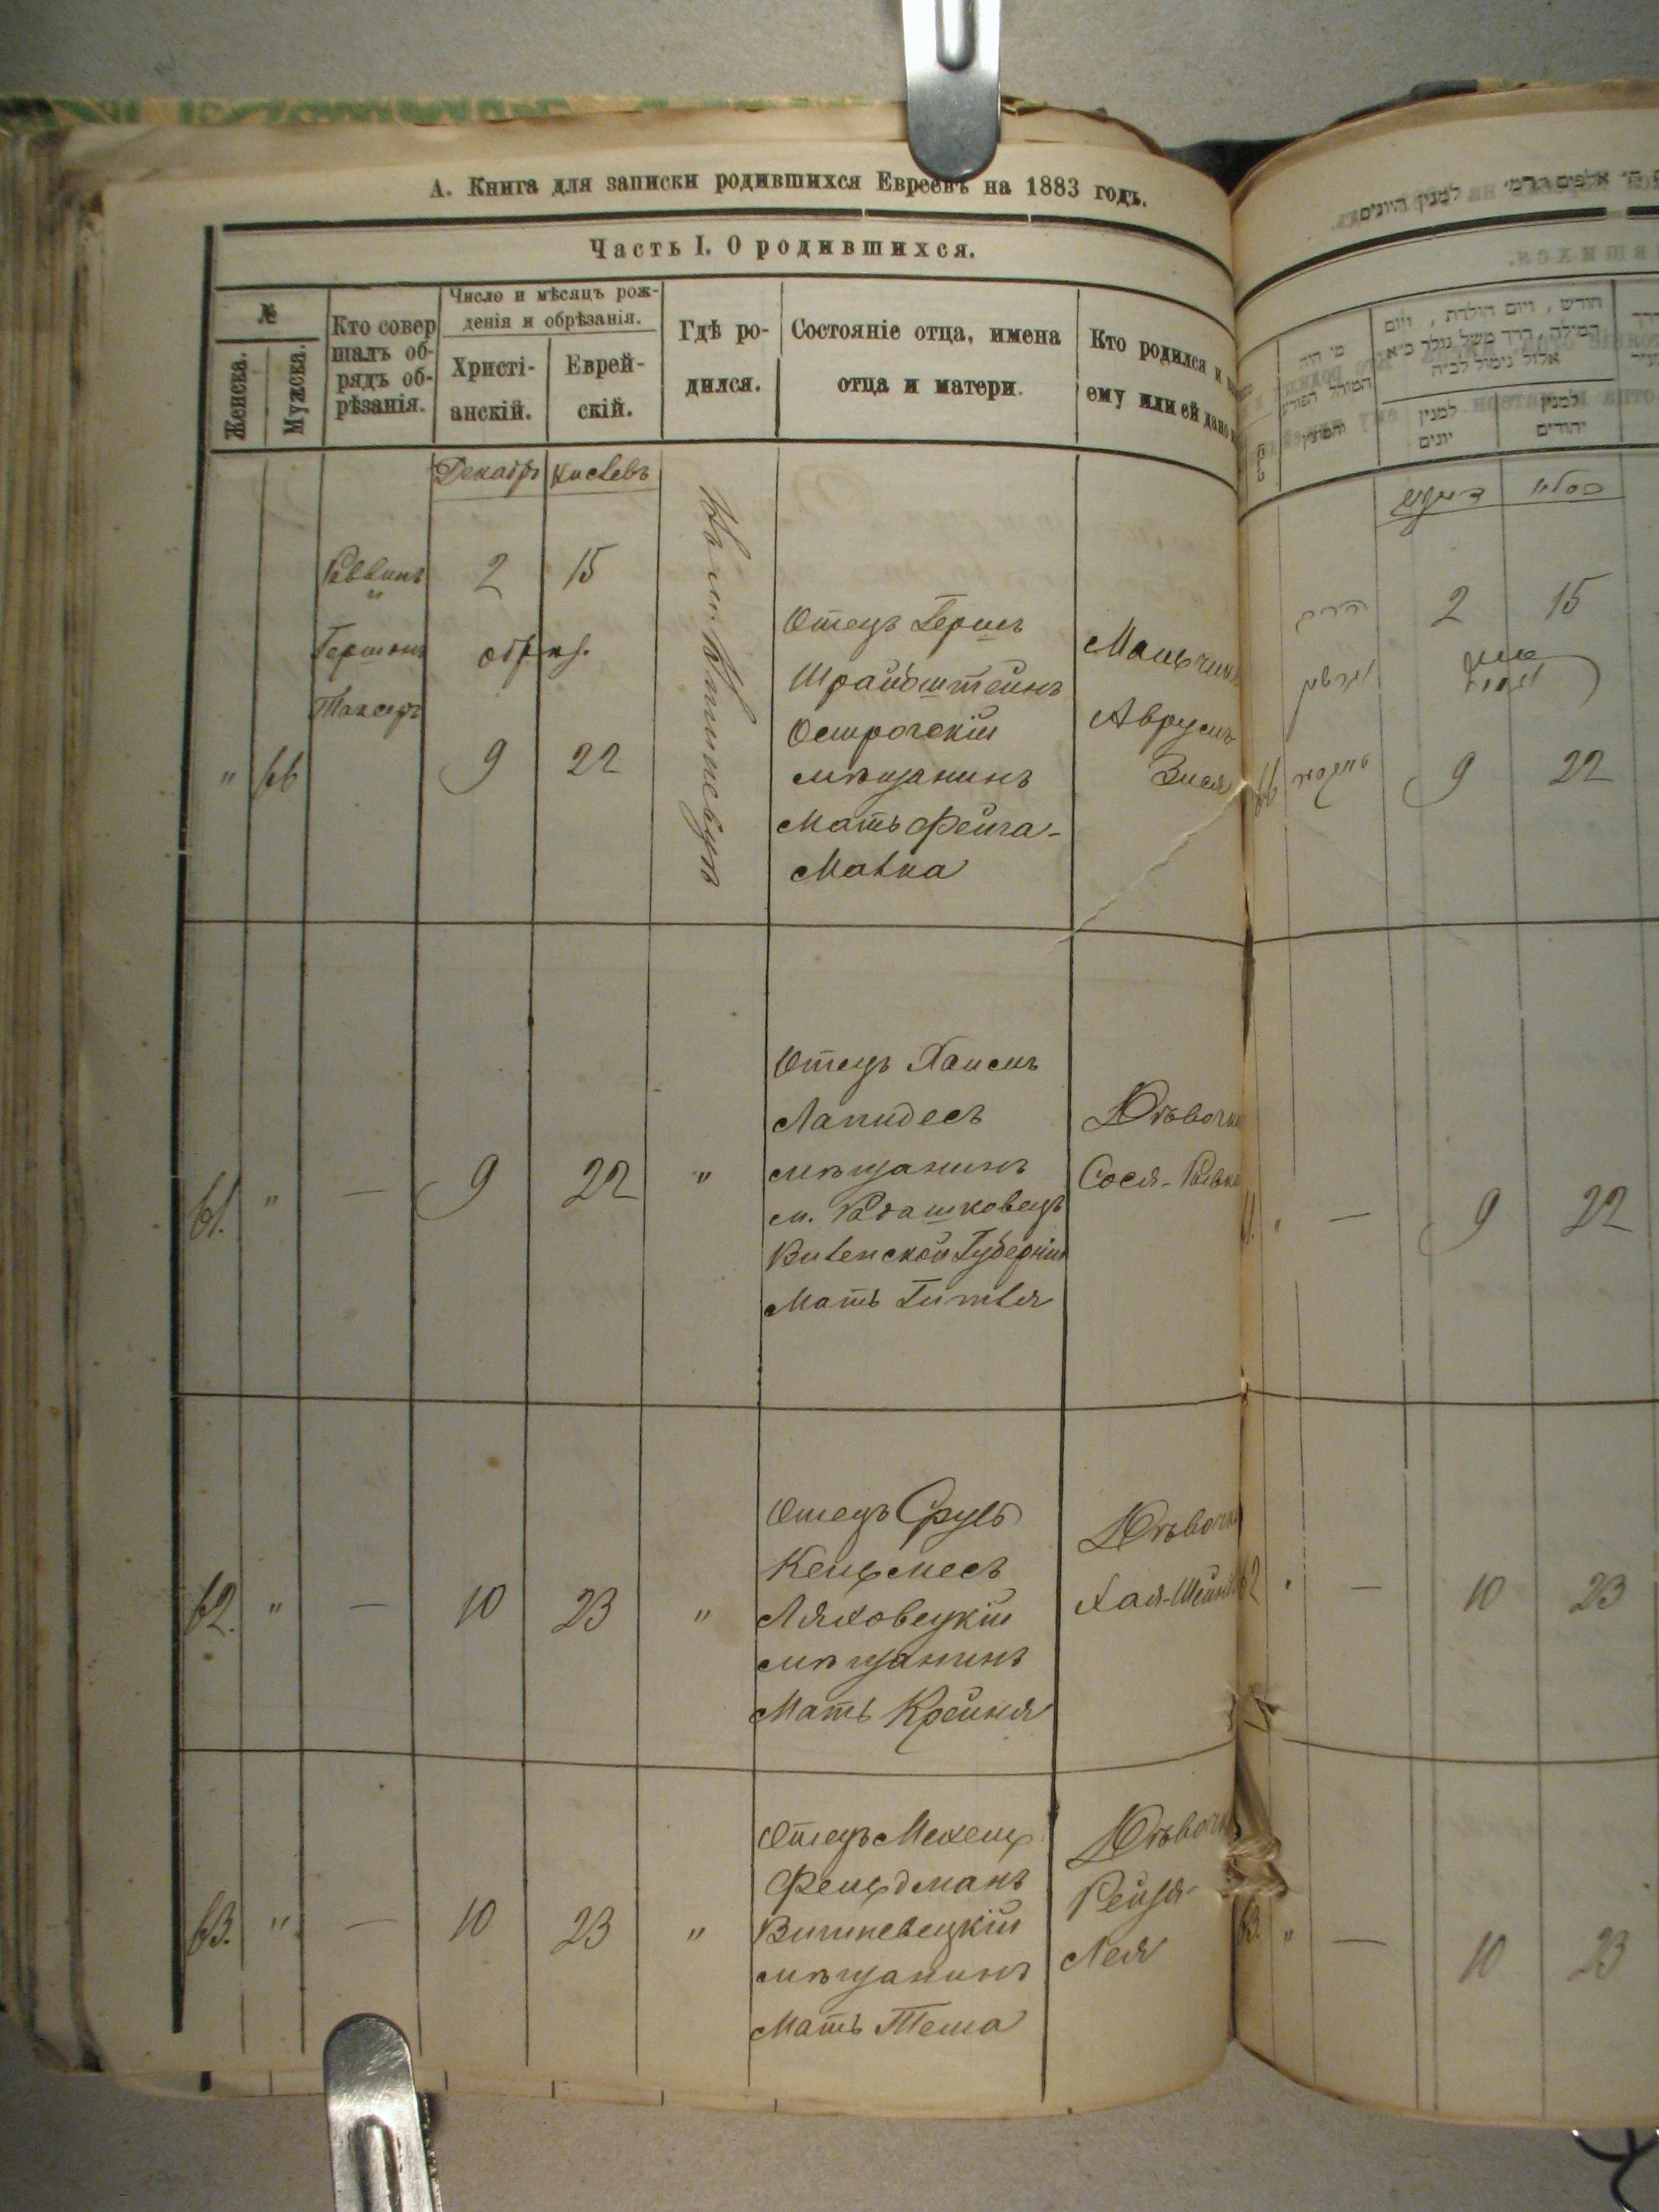 А. Книга для записки родившихся Евреевъ на 1883 годъ.
Часть I. О родившихся.
№
Женска.
Мужска.
Кто совер
шалъ об-
рядъ об-
рѣзанія.
Число и мѣсяцъ рож-
денія и обрѣзанія.
Христі-
анскій.
Еврей-
скій.
Гдѣ ро-
дился.
Состояніе отца, имена
отца и матери.
Кто родился и
ему или ей дано
Декабр Кислевъ
Раввинъ
"
Гершонъ
Таксеръ
2 15
обрѣз.
9 22
" 66
Въ м. Вишневцѣ
Отецъ Гершъ
Шрайбштейнъ
Острогскій
мѣщанинъ
Мать Фейга-
Малка
Мальчикъ
Аврумъ
Зися
61. " — 9 22 "
Отецъ Хаимъ
Лапидесъ
мѣщанинъ
м. Радашковецъ
Виленской Губерніи
Мать Гитля
Дѣвочка
Сося-Ривка
62. " — 10 23 "
Отецъ Сруль
Кельмесъ
Ляховецкій
мѣщанинъ
Мать Крейня
Дѣвочка
Хая-Шейня
63. " — 10 23 "
Отецъ Мехель
Фельдманъ
Вишневецкій
мѣщанинъ
Мать Тема
Дѣвочка
Рейзя-
Лея
למנין היונים
חודש, ויום הולדת, ויום
המילה, דרך משל נולד כ״א
אלול נימול לכ״ה
מי היה
המוהל הפורע
והמוצץ
למנין
יונים
למנין
יהודים
דעקאב כסליו
2 15
9 22
66
61. " — 9 22
62 " — 10 23
63. " — 10 23